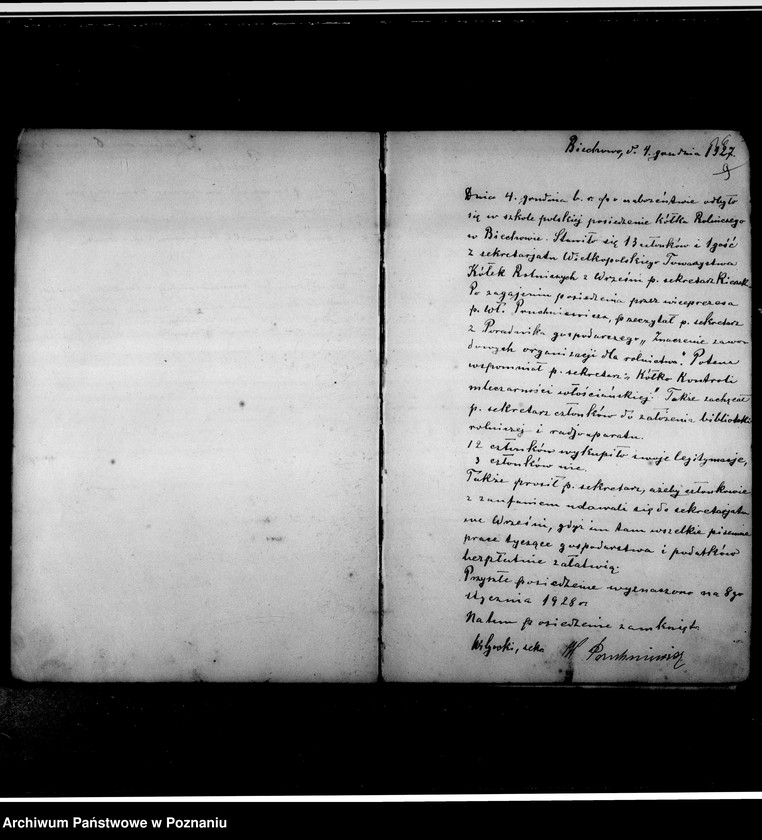 Biechowo, d. 4. grudnia 1927.
9
Dnia 4. grudnia b. r. po nabożeństwie odbyło
się w szkole polskiej posiedzenie Kółka Rolniczego
w Biechowie. Stawiło się 13 członków i 1 gość
z sekretarjatu Wielkopolskiego Towarzystwa
Kółek Rolniczych z Wrześni p. sekretarz
Po zagajeniu posiedzenia przez wiceprezesa
p. Wł. Poruchniewicza, przeczytał p. sekretarz
z Poradnika gospodarczego „Znaczenie zawo-
dowych organizacji dla rolnictwa". Potem
wspomniał p. sekretarz: „Kółko Kontroli
mleczarności włościańskiej". Także zachęcał
p. sekretarz członków do założenia biblioteki
rolniczej i radjoaparatu.
12 członków wykupiło swoje legitymacje,
3 członków nie.
Także prosił p. sekretarz, ażeby członkowie
z zaufaniem udawali się do sekretarjatu
we Wrześni, gdyż im tam wszelkie pisemne
prace tyczące gospodarstwa i podatków
bezpłatnie załatwią.
Przyszłe posiedzenie wyznaczono na 8go
stycznia 1928 r.
Na tem posiedzenie zamknięt.
sekr. W Poruchniewicz
Archiwum Państwowe w Poznaniu